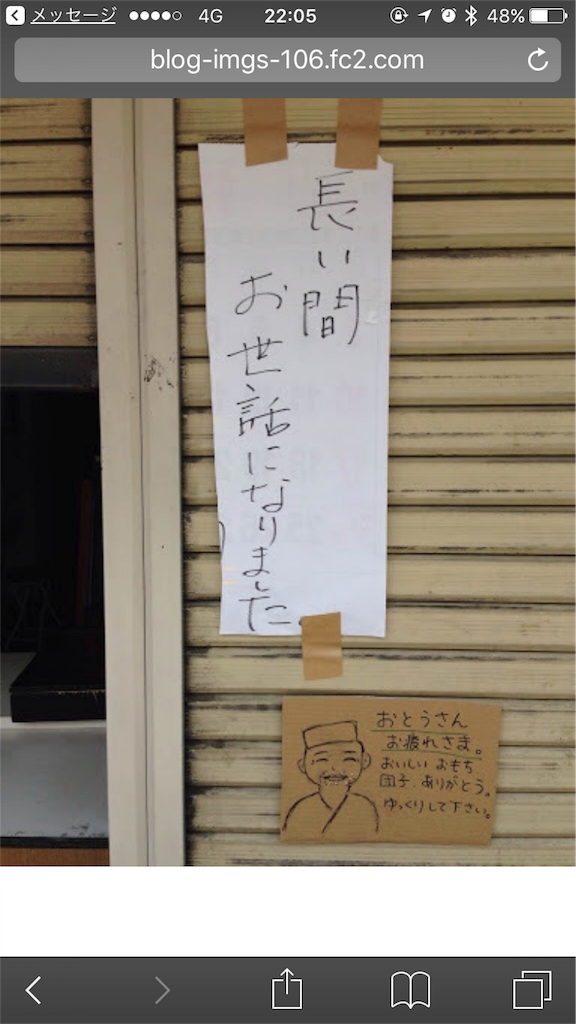 メッセージ 4G 22:05 48%
blog-imgs-106.fc2.com
長い間
お世話になりました
おとうさん
お疲れさま。
おいしい おもち
団子、ありがとう。
ゆっくりして下さい。